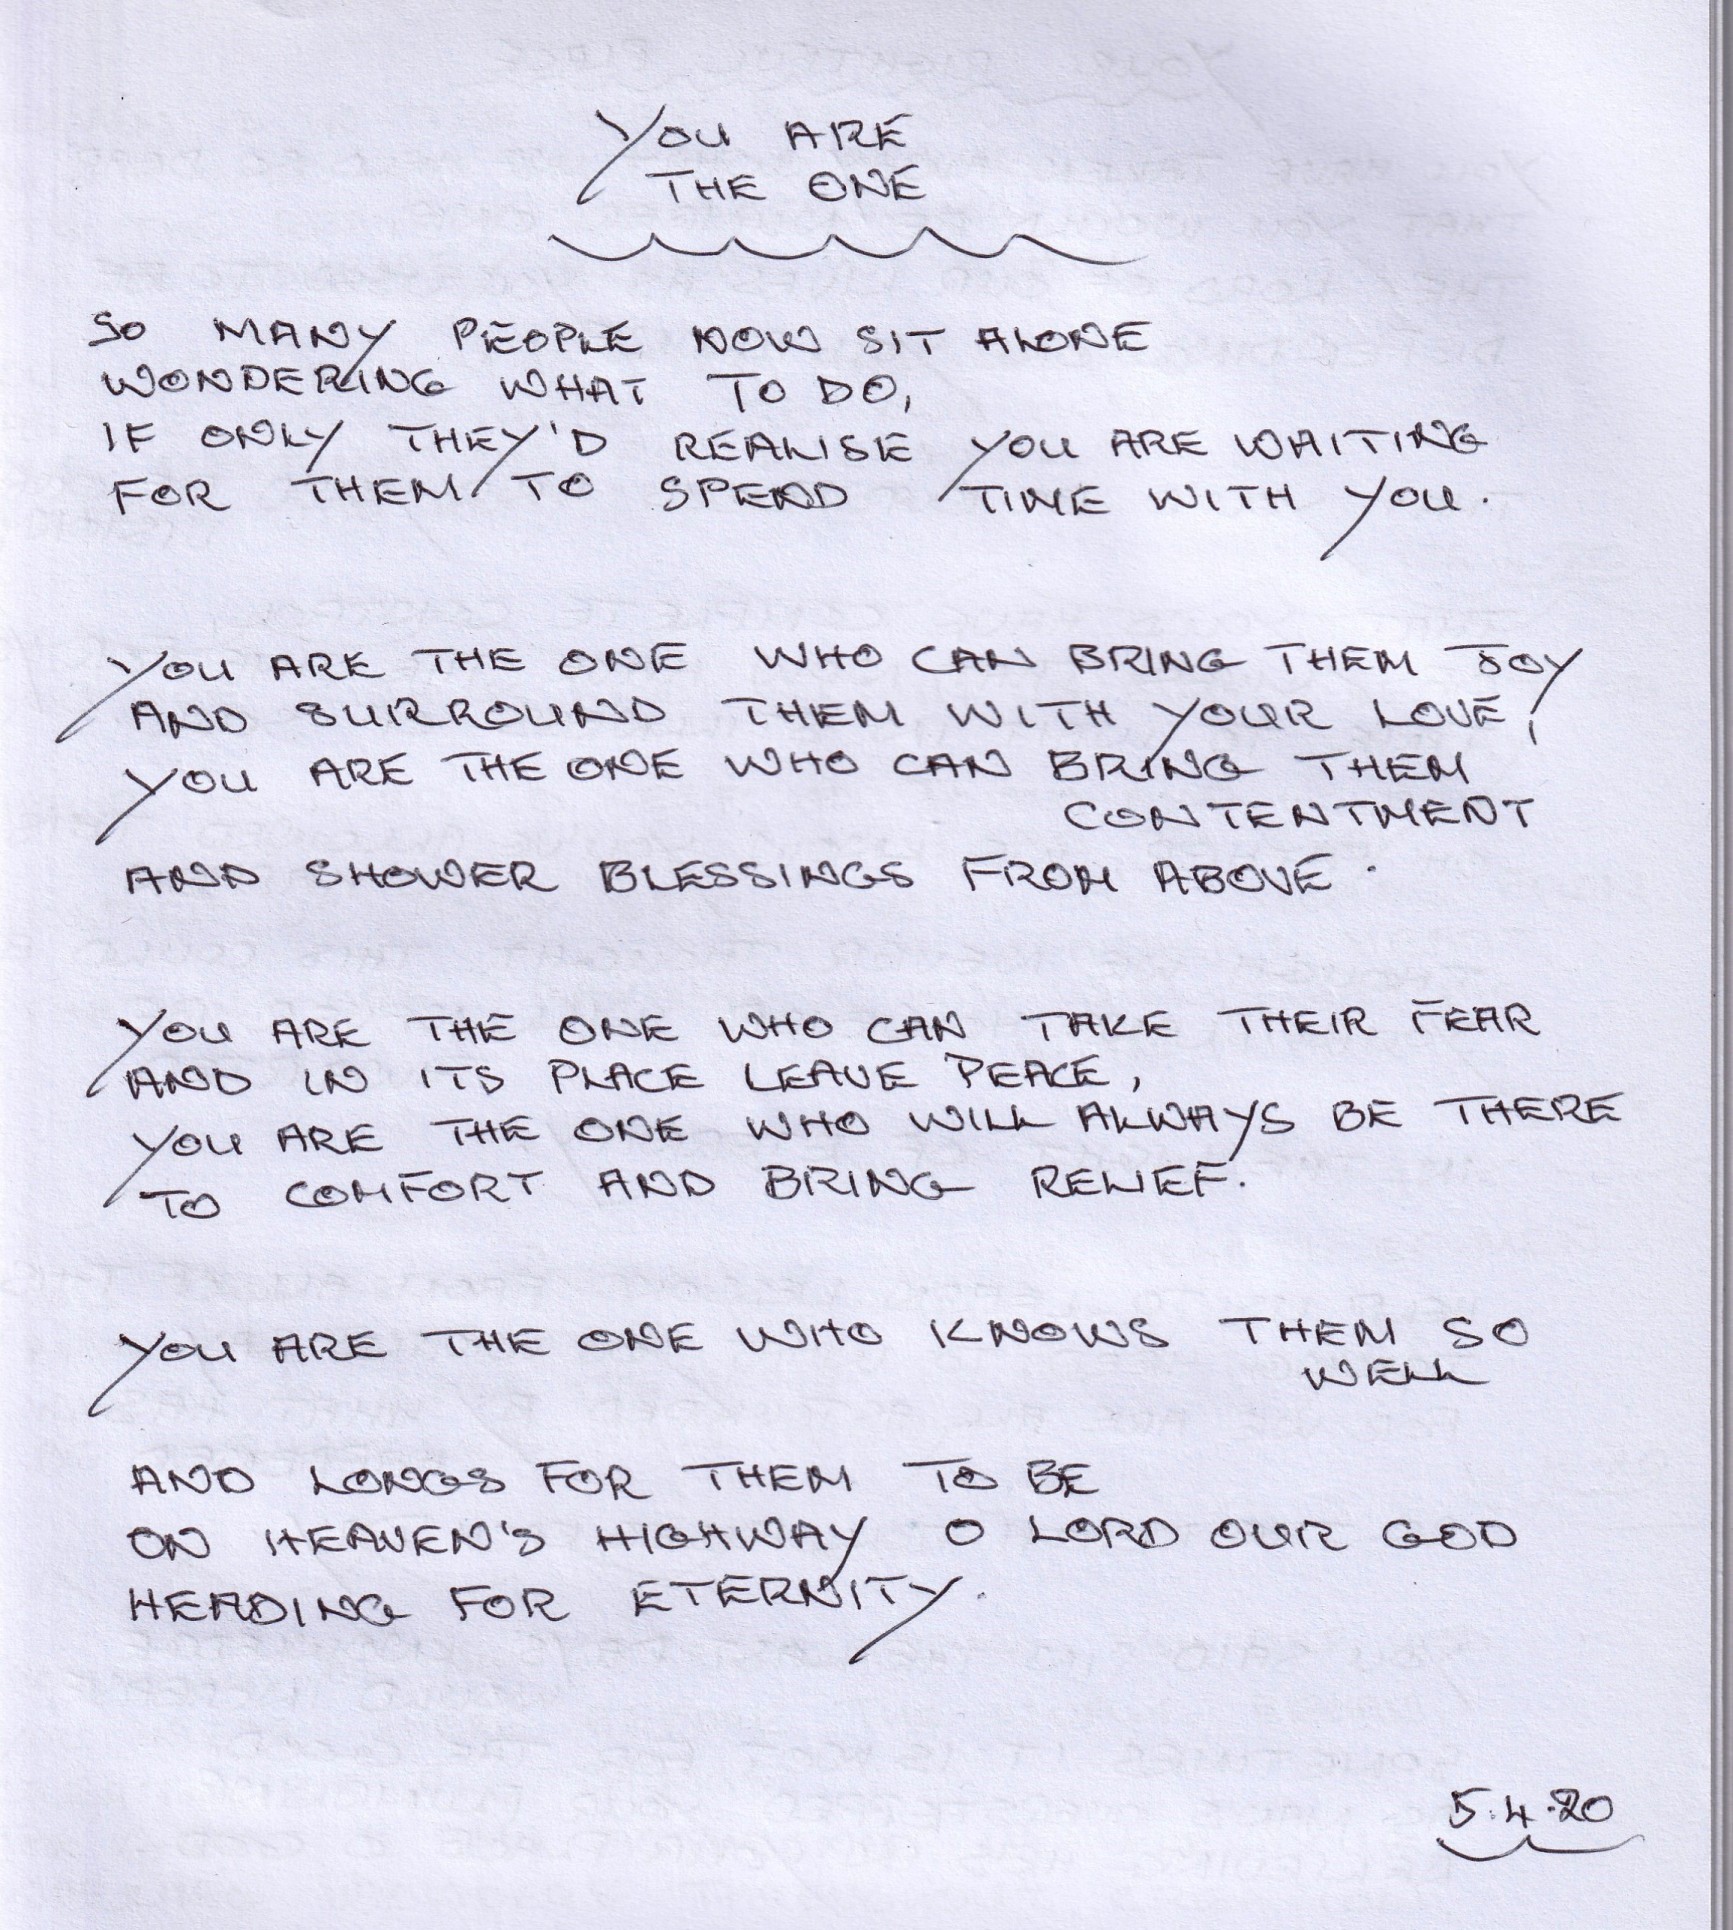 YOU ARE
THE ONE
SO MANY PEOPLE NOW SIT ALONE
WONDERING WHAT TO DO,
IF ONLY THEY'D REALISE YOU ARE WAITING
FOR THEM TO SPEND TIME WITH YOU.
YOU ARE THE ONE WHO CAN BRING THEM JOY
AND SURROUND THEM WITH YOUR LOVE,
YOU ARE THE ONE WHO CAN BRING THEM
CONTENTMENT
AND SHOWER BLESSINGS FROM ABOVE.
YOU ARE THE ONE WHO CAN TAKE THEIR FEAR
AND IN ITS PLACE LEAVE PEACE,
YOU ARE THE ONE WHO WILL ALWAYS BE THERE
TO COMFORT AND BRING RELIEF.
YOU ARE THE ONE WHO KNOWS THEM SO
WELL
AND LONGS FOR THEM TO BE
ON HEAVEN'S HIGHWAY O LORD OUR GOD
HEADING FOR ETERNITY.
5.4.20